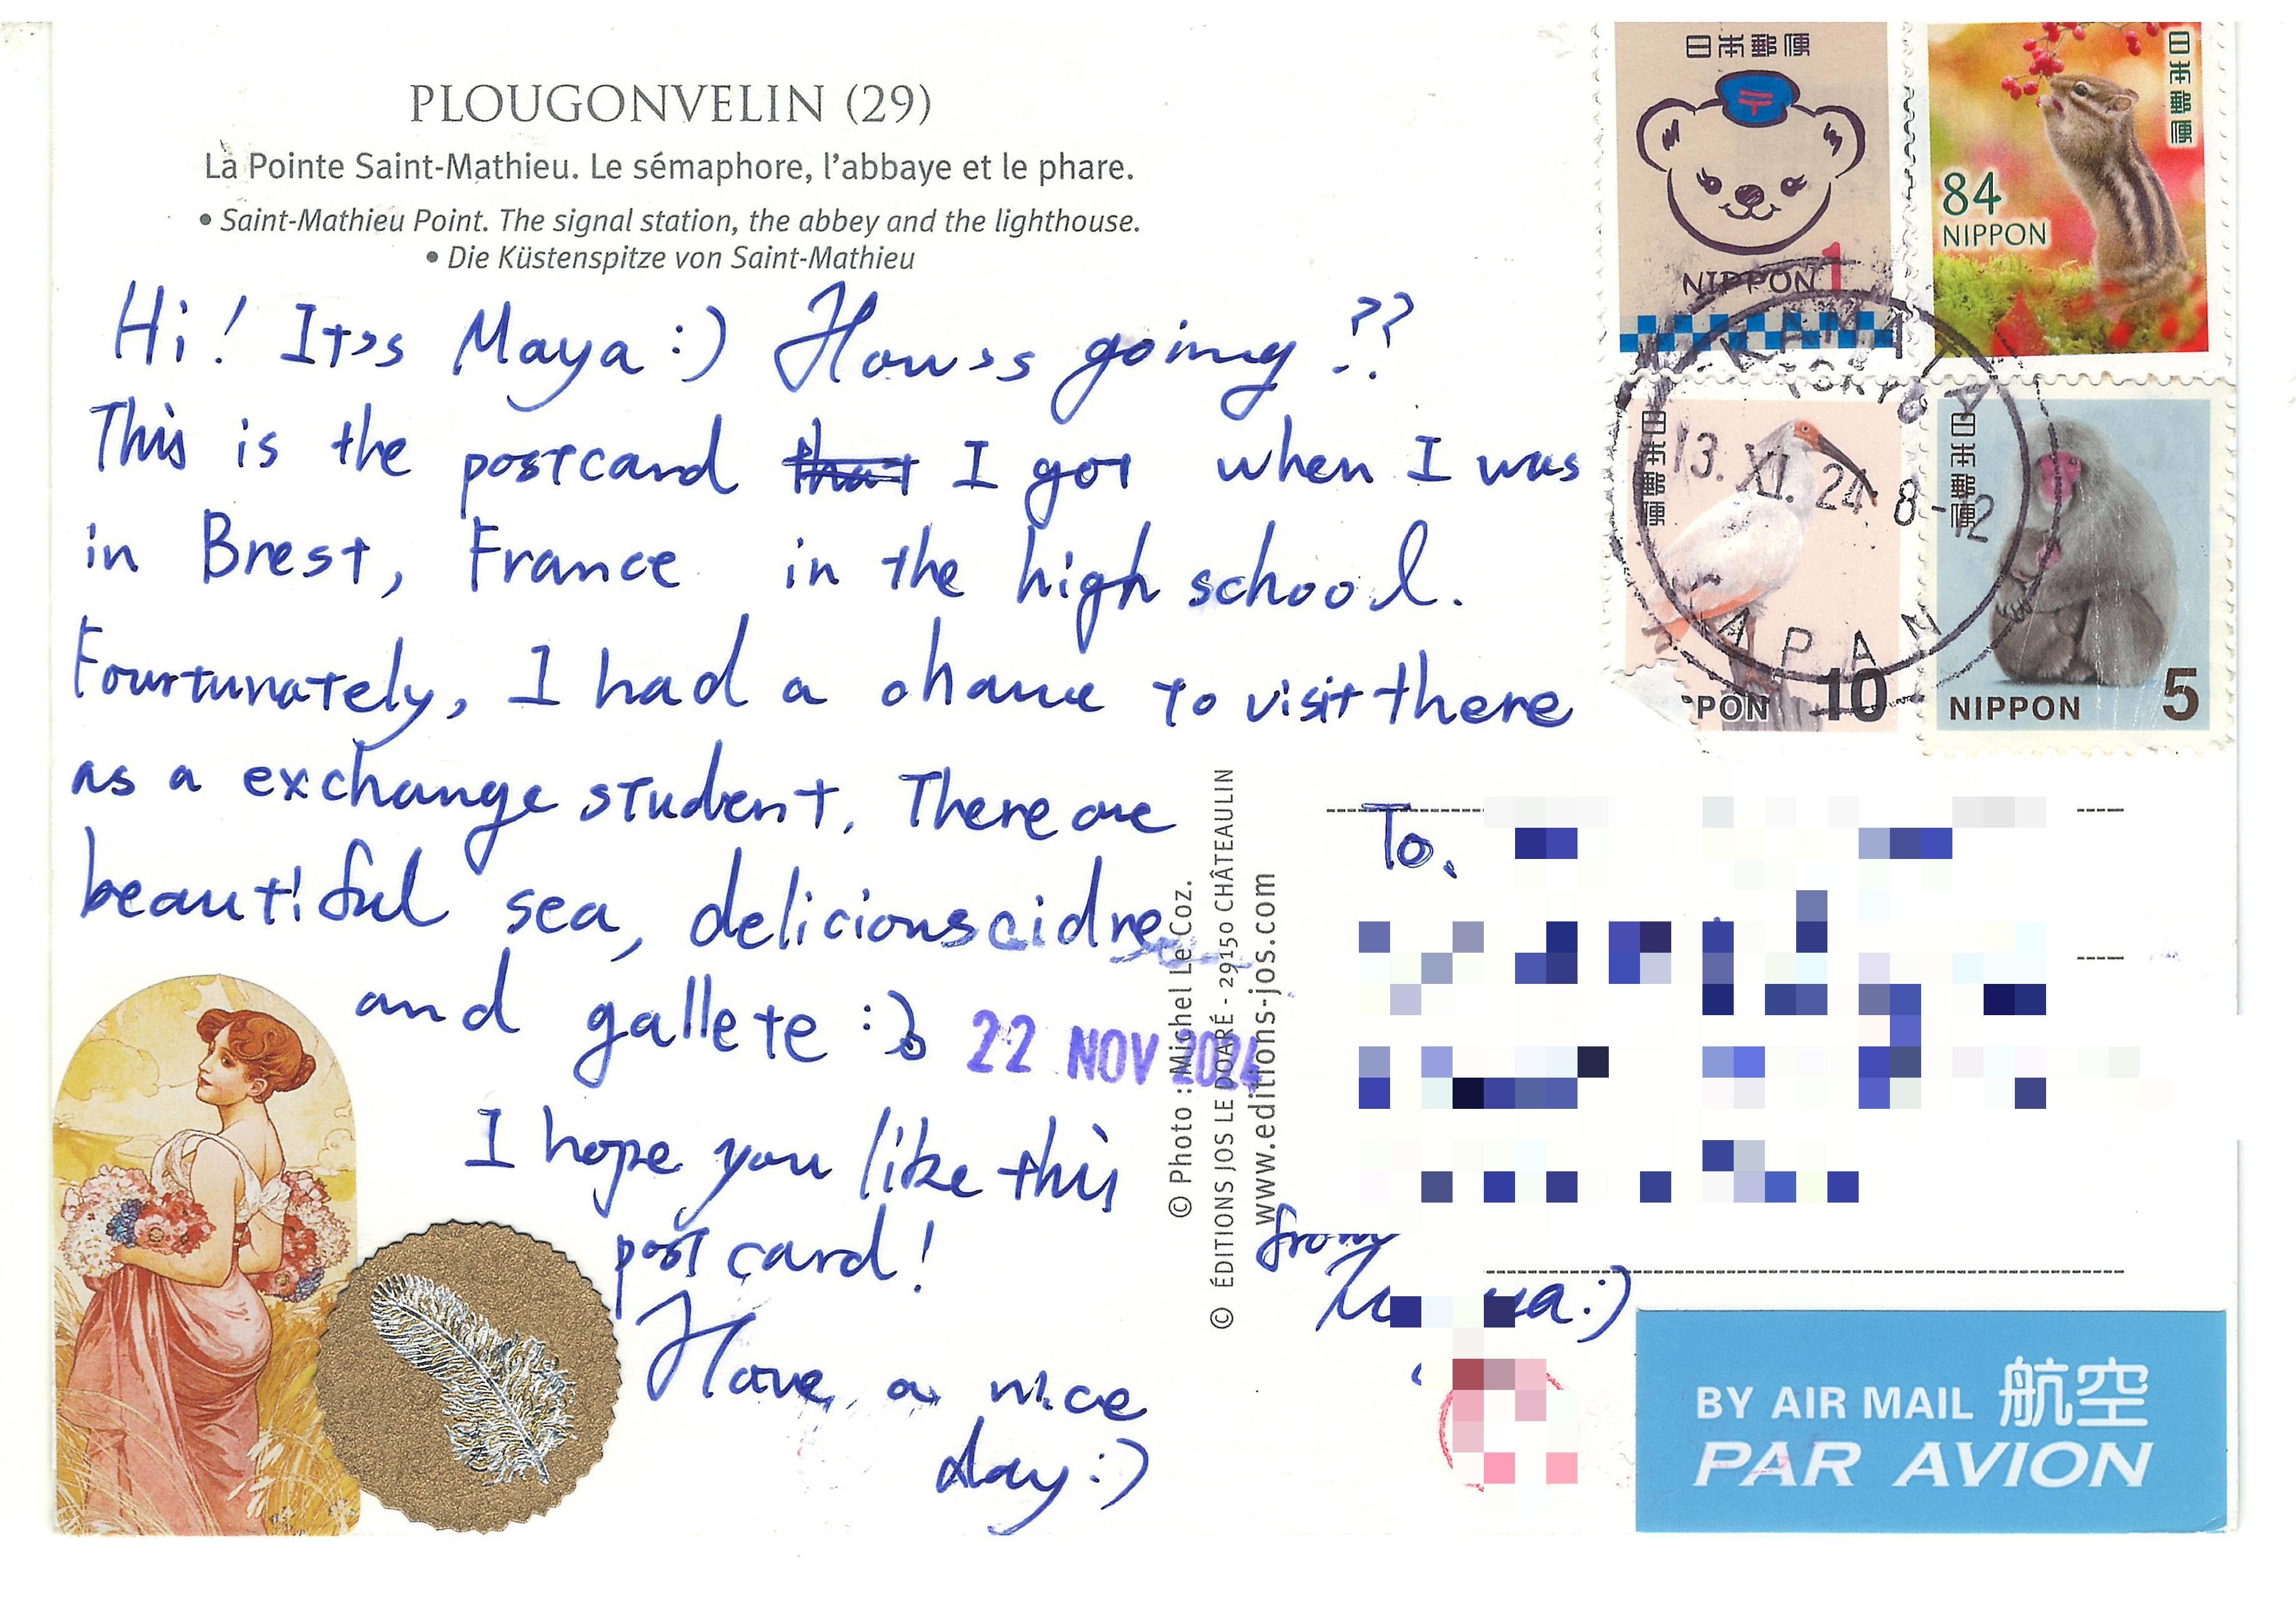 PLOUGONVELIN (29)
La Pointe Saint-Mathieu. Le sémaphore, l'abbaye et le phare.
• Saint-Mathieu Point. The signal station, the abbey and the lighthouse.
• Die Küstenspitze von Saint-Mathieu
Hi! It's Maya :) How's going !??
This is the postcard that I got when I was
in Brest, France in the high school.
Fourtunately, I had a chance to visit there
as a exchange student. There are
beautiful sea, delicious cidre
and gallete :)
22 NOV 2024
I hope you like this
post card!
Have a nice
day :)
© Photo : Michel Le Coz.
© ÉDITIONS JOS LE DOARÉ - 29150 CHÂTEAULIN
www.editions-jos.com
日本郵便
NIPPON 1
日本郵便
84
NIPPON
日本郵便
10
日本郵便
NIPPON 5
TOKYO
13. XI. 24 8-12
JAPAN
To.
from
:)
BY AIR MAIL 航空
PAR AVION